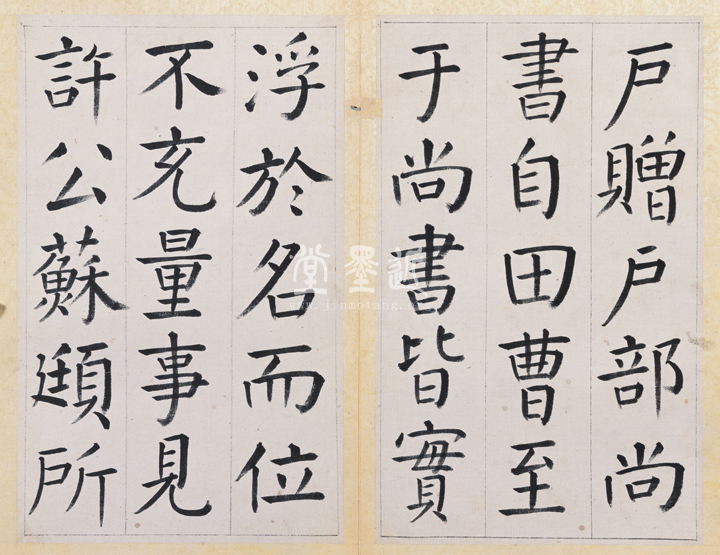 戶贈戶部尚
書自田曹至
于尚書皆實
浮於名而位
不充量事見
許公蘇頲所
近墨堂